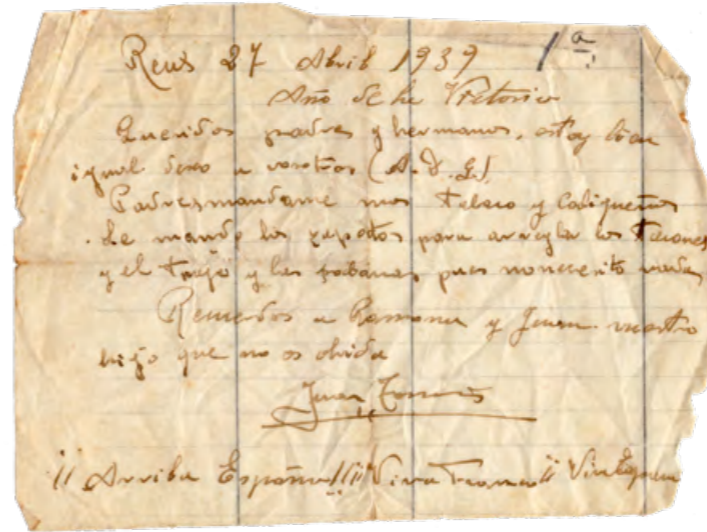 Reus 27 Abril 1939 1ª
Año de la Victoria
Queridos padres y hermanos, estoy bien
igual deseo a vosotros (A.D.G.)
Padres mandame mas Tabaco y Caliqueños
Le mando los zapatos para arreglar los Tacones
y el Traje y las sabanas pues no necesito
Recuerdos a Ramona y Juan vuestro
hijo que no os olvida
Juan
¡¡Arriba España!! ¡¡Viva Franco!!